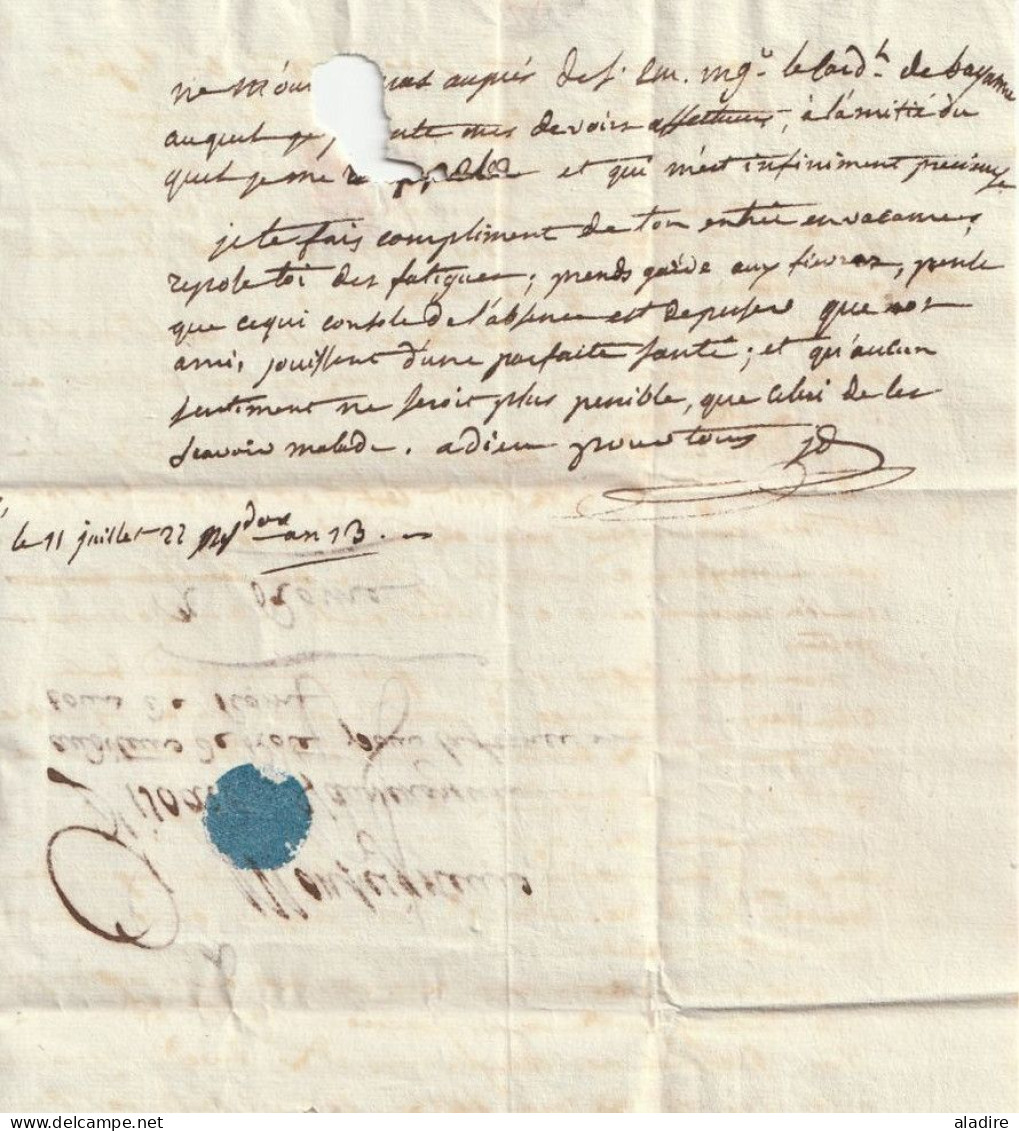 ne m'ou pas auprés de S. Em. mgr. le Card.l de bayanne
auquel je mes devoirs affectueux, à l'amitié du
quel je me et qui m'est infiniment precieuse
je te fais compliment de ton entrée en vacances,
repose toi des fatigues; prends garde aux fievres, pense
que ce qui console de l'absence est de penser que nos
amis jouissent d'une parfaite santé; et qu'aucun
sentiment ne seroit plus penible, que celui de les
sçavoir malade. adieu pour tous
le 11 juillet 22 Messdor an 13.
a Rome
cour de Rome
auditeur de rote pour la
Monseigneur
aladire